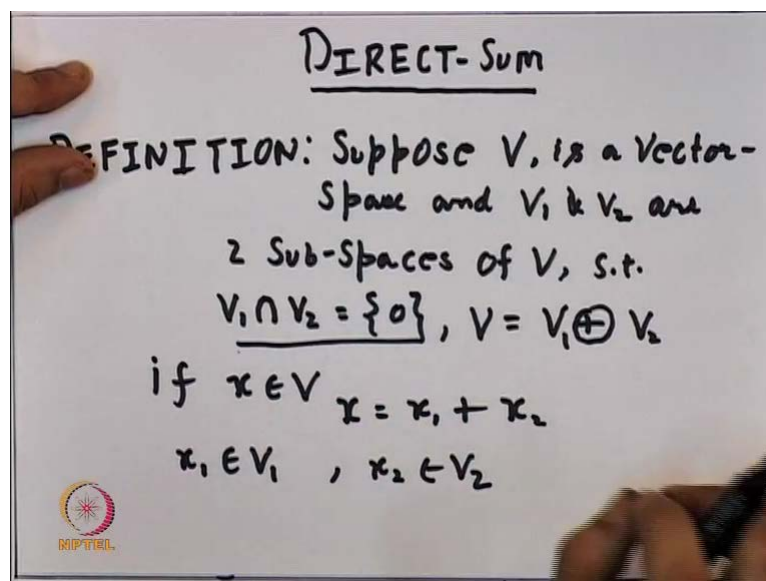 DIRECT-SUM
DEFINITION: Suppose V, is a Vector-
Space and V₁ & V₂ are
2 Sub-Spaces of V, s.t.
V₁ ∩ V₂ = {0}, V = V₁ ⊕ V₂
if x ∈ V x = x₁ + x₂
x₁ ∈ V₁ , x₂ ∈ V₂
NPTEL